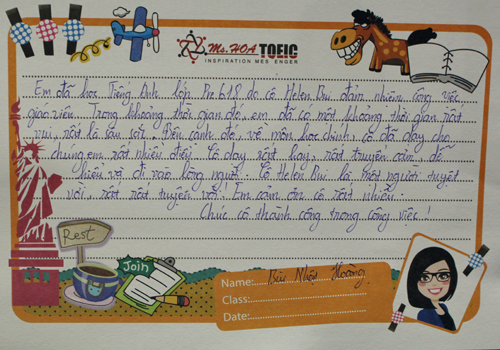 Ms. HOA TOEIC
INSPIRATION MES ENGER
Em đã học Tiếng Anh lớp Pre 618 do cô Helen Bui đảm nhiệm công việc
giáo viên. Trong khoảng thời gian đó, em đã có một khoảng thời gian rất
vui, rất là sâu sắc. Bên cạnh đó, về môn học chính, cô đã dạy cho
chúng em rất nhiều điều. Cô dạy rất hay, rất truyền cảm, dễ
hiểu và đi vào lòng người. Cô Helen Bui là một người tuyệt
vời, rất rất tuyệt vời! Em cảm ơn cô rất nhiều.
Chúc cô thành công trong công việc!
Rest
Join
Name: Bùi Nhật Hoàng
Class:
Date: